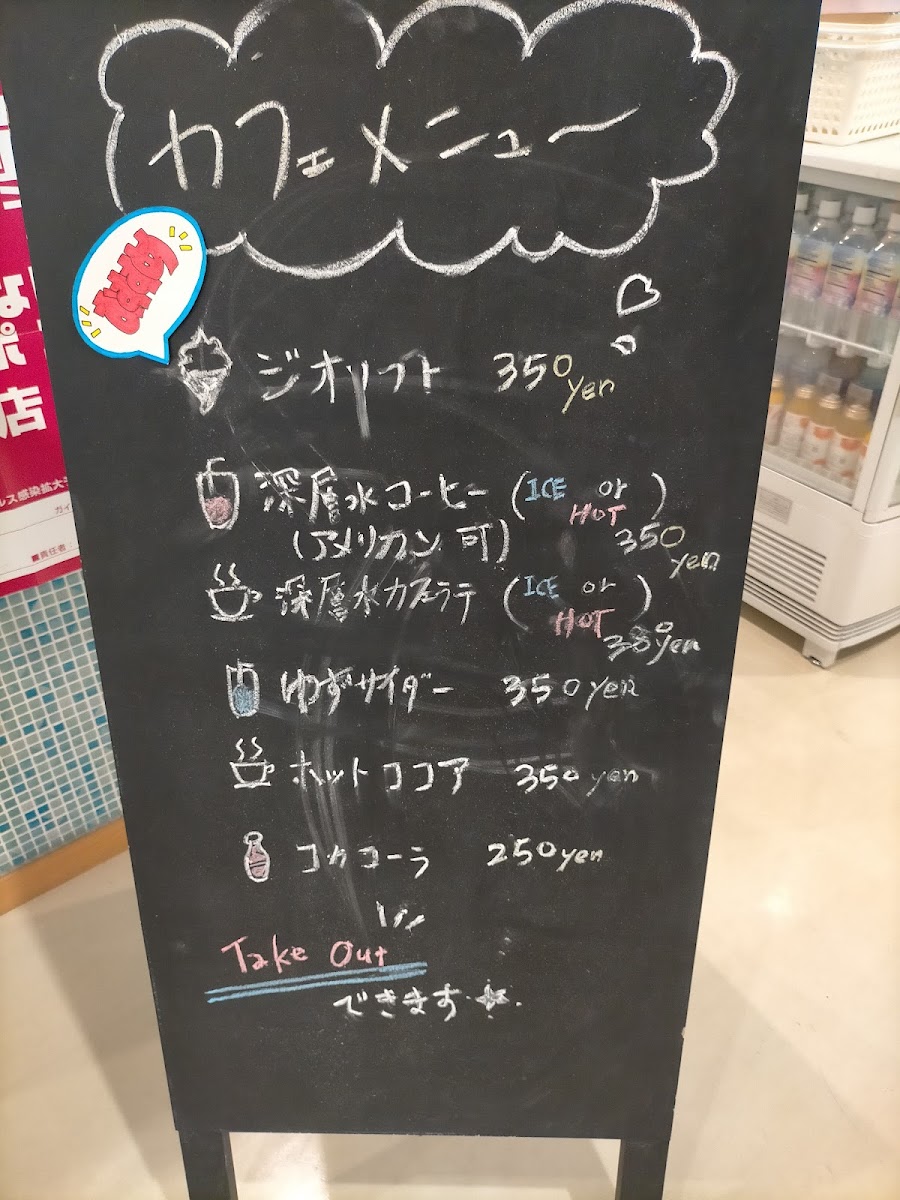 カフェメニュー
ジオソフト 350yen
深層水コーヒー (ICE or HOT)
(アメリカン 可) 350yen
深層水カフェラテ (ICE or HOT)
380yen
ゆずサイダー 350yen
ホットココア 350yen
コカコーラ 250yen
Take Out
できます
店
ルス感染拡大